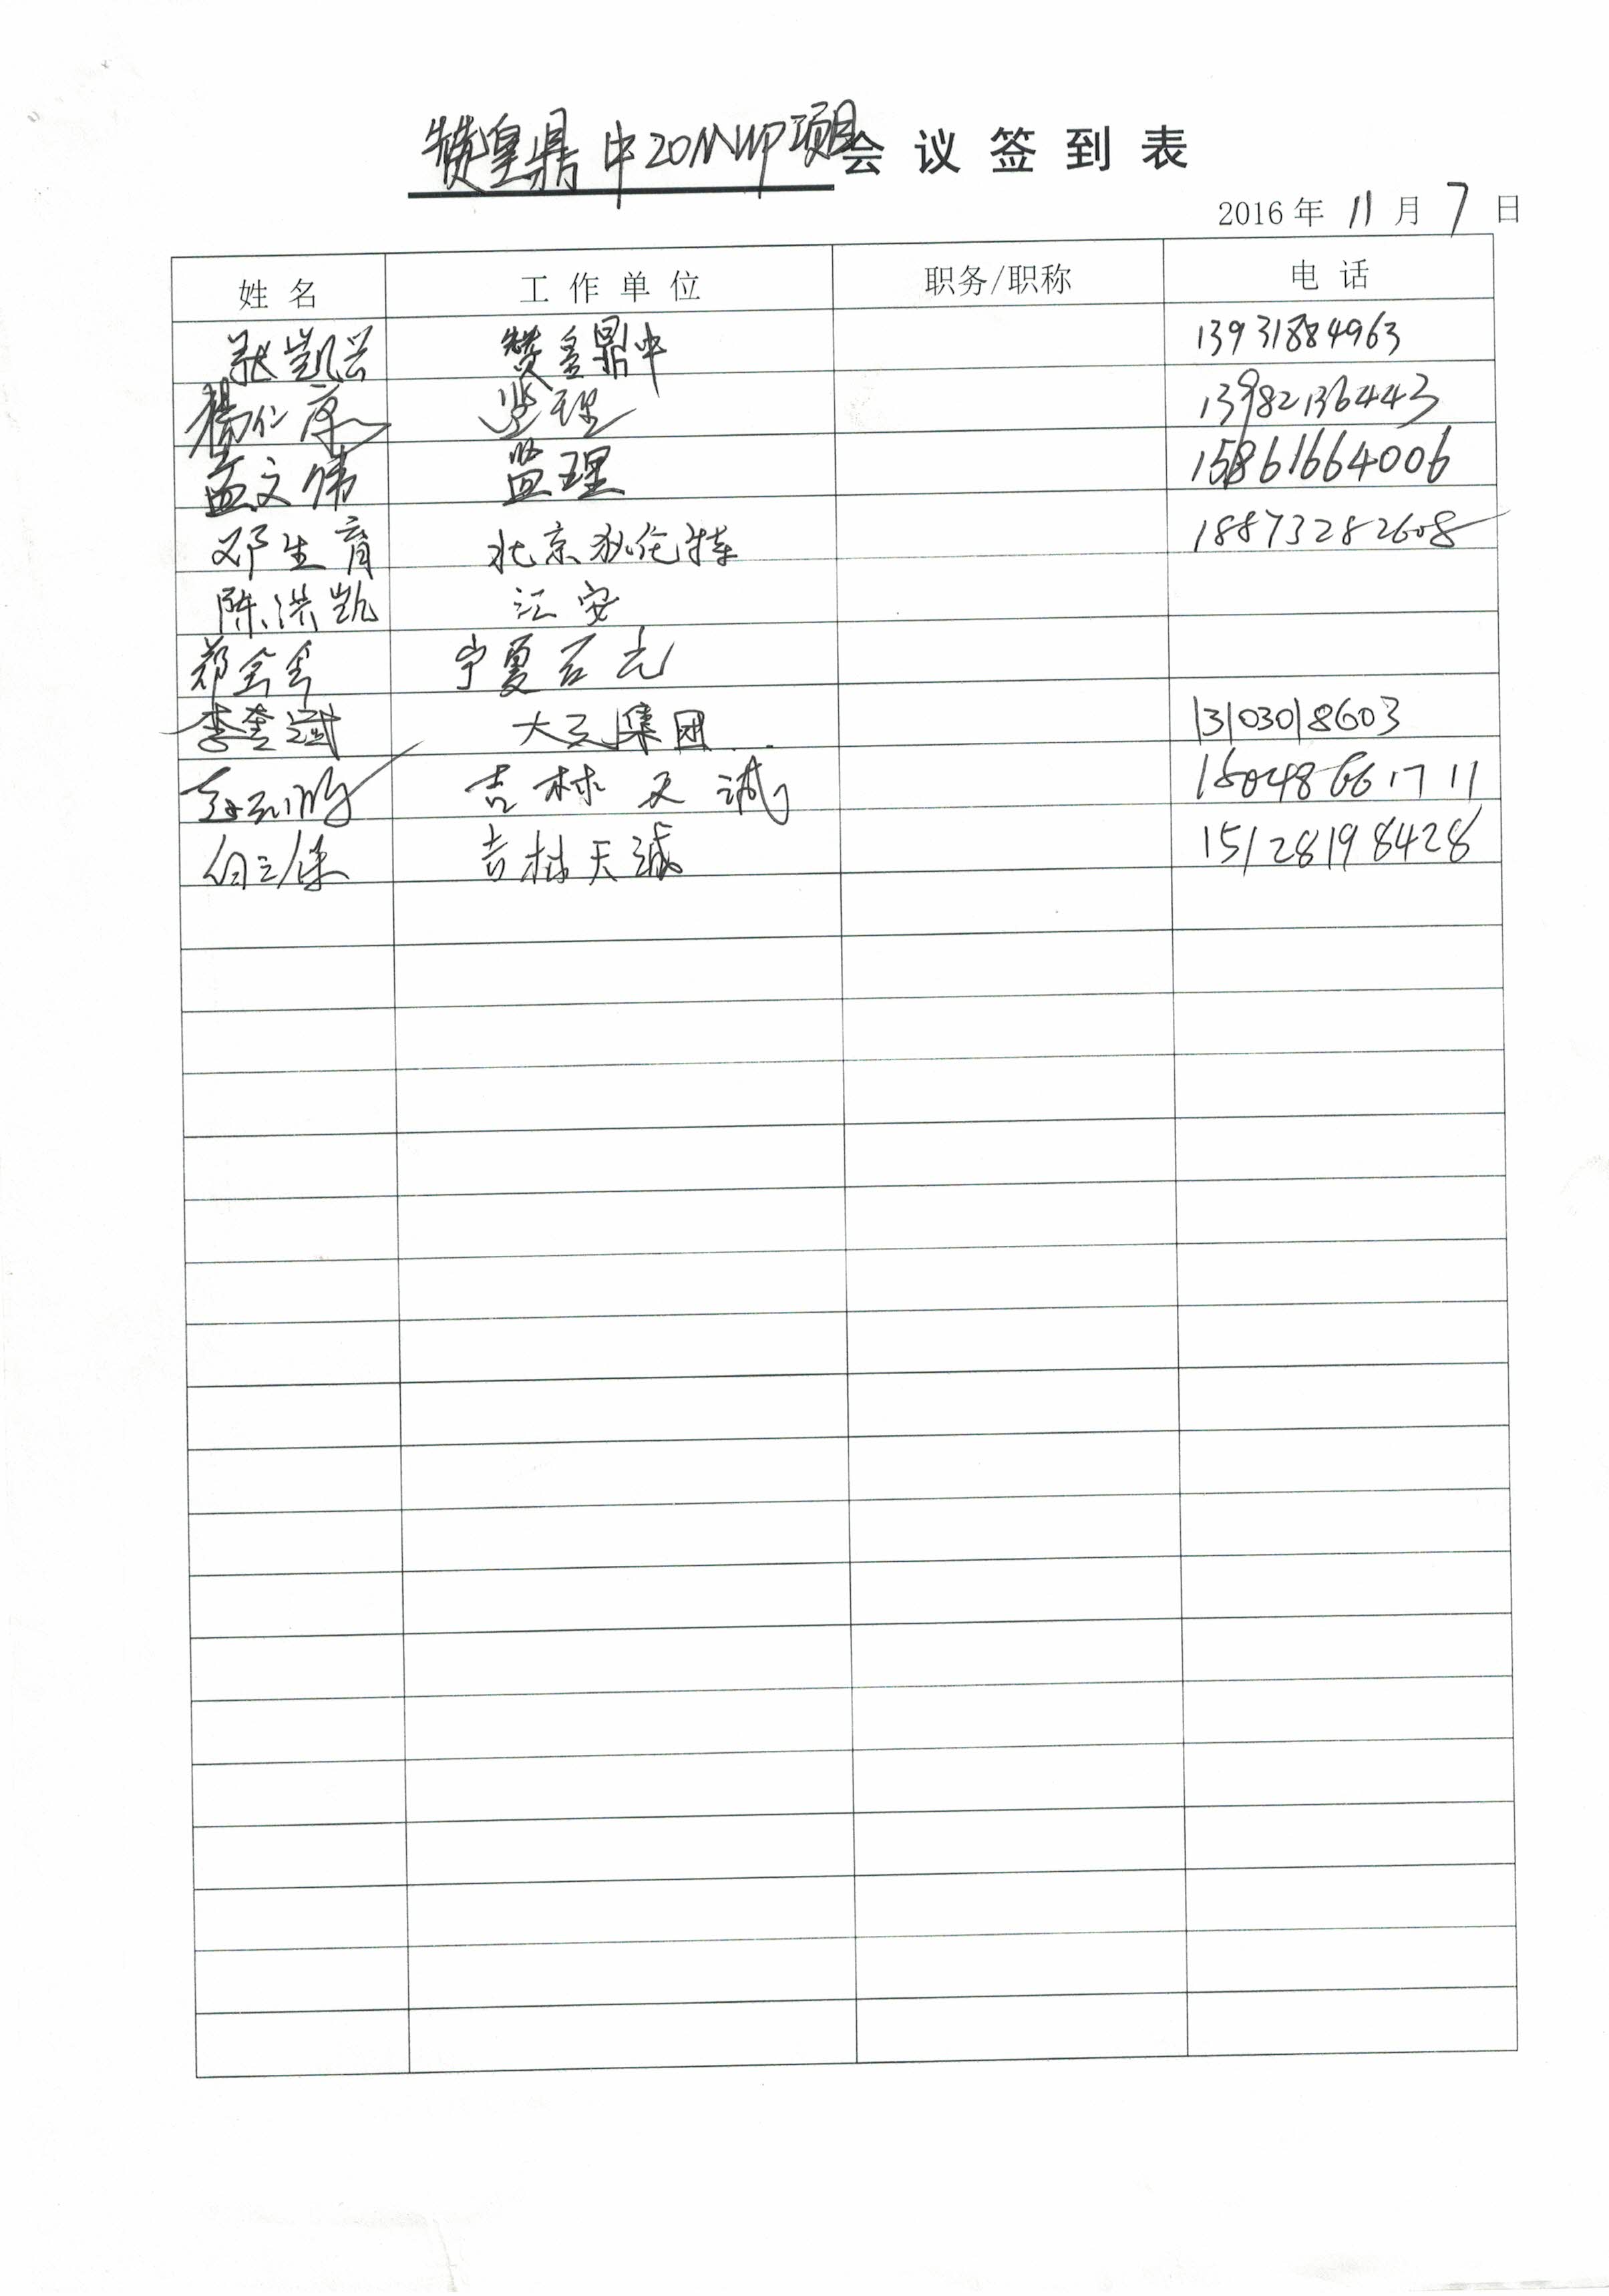 赞皇鼎中20MWP项目会议签到表
2016年 11月 7日
姓名 工作单位 职务/职称 电话
张凯兴 赞皇鼎中 13931884963
杨仁 监理 13982136443
孟文伟 监理 15861664006
邓生育 北京狄伦特 18873282608
陈洪凯 江安
郑金 宁夏百光
李奎斌 大元集团 13103018603
吉林天诚 15048661711
吉林天诚 15128198428